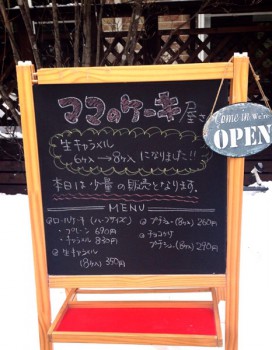 ママのケーキ屋さん
Come in We're
OPEN
生キャラメル
6ケ入→8ケ入 になりました!!
本日は少量の販売となります。
MENU
ロールケーキ (ハーフサイズ)
・プレーン 690円
・キャラメル 830円
生キャラメル
(8ケ入) 350円
(8ケ入) 260円
チョコがけ
(8ケ入) 290円